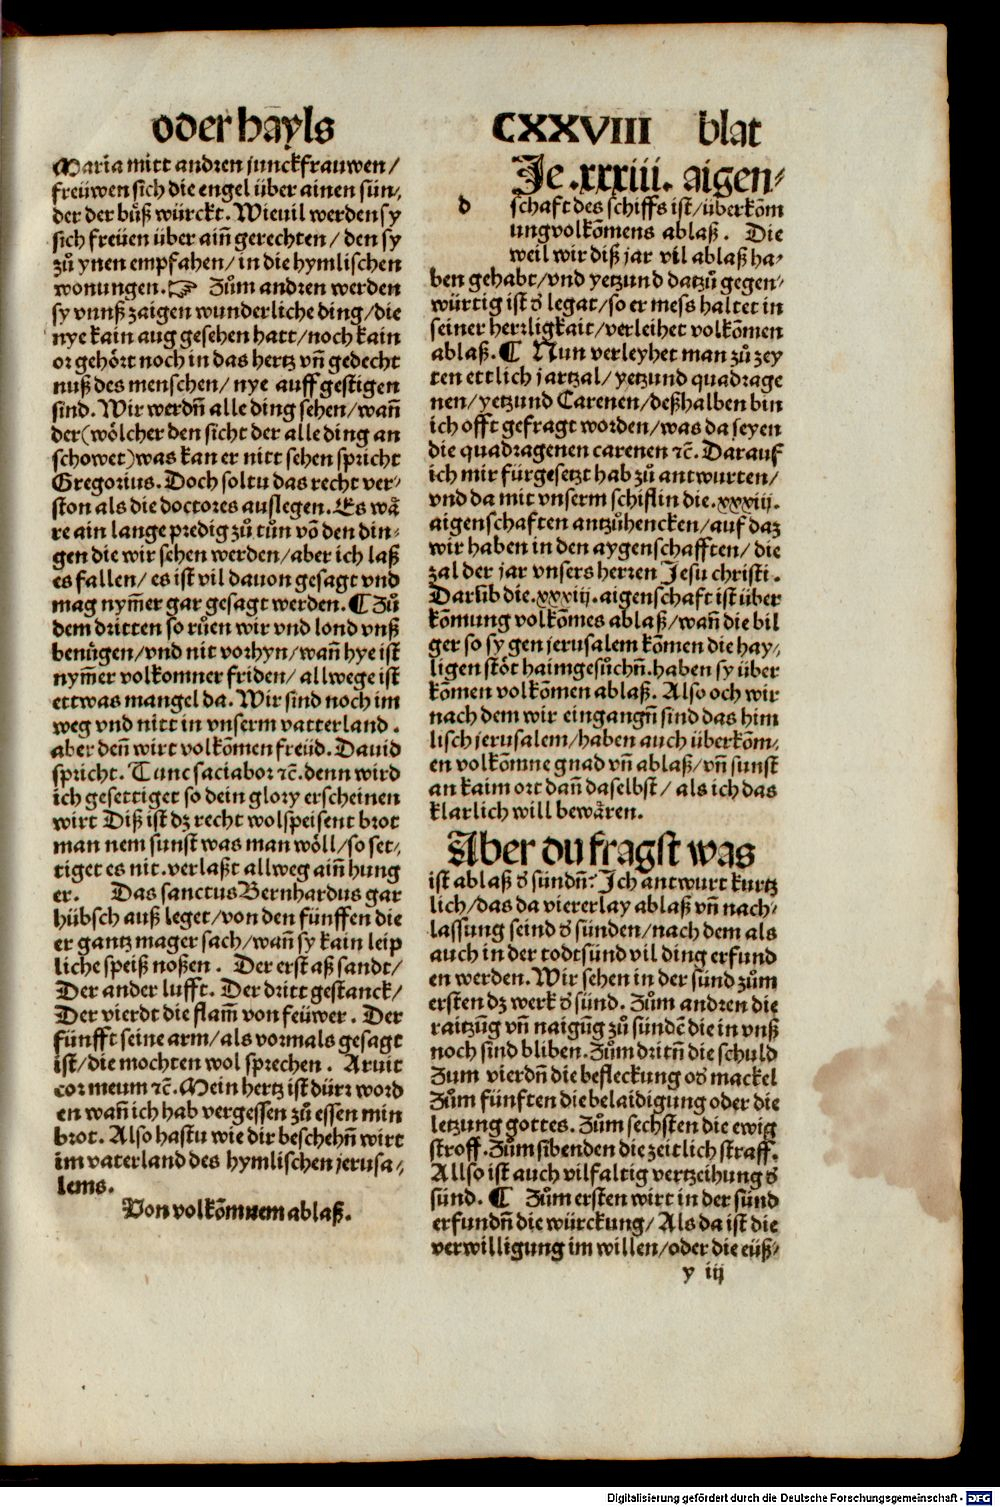 oder hayls
CXXVIII blat
Maria mitt andren junckfrauwen/
freüwen sich die engel über ainen sün⸗
der der bůß würckt. Wieuil werden sy
sich freüen über aiñ gerechten/ den sy
zů ynen empfahen/ in die hymlischen
wonungen.☞ Zům andren werden
sy vnnß zaigen wunderliche ding/die
nye kain aug gesehen hatt/noch kain
or gehört noch in das hertz vñ gedecht
nuß des menschen/ nye auff gestigen
sind. Wir werdñ alle ding sehen/wañ
der(wölcher den sicht der alle ding an
schowet)was kan er nitt sehen spricht
Gregorius. Doch soltu das recht ver⸗
ston als die doctores auslegen. Es wä
re ain lange predig zů tůn võ den din⸗
gen die wir sehen werden/aber ich laß
es fallen/ es ist vil dauon gesagt vnd
mag nym̃er gar gesagt werden.¶ Zů
dem dritten so růen wir vnd lond vnß
benügen/vnd nit vorhyn/wañ hye ist
nym̃er volkomner friden/ allwege ist
ettwas mangel da. Wir sind noch im
weg vnd nitt in vnserm vatterland.
aber deñ wirt volkõmen freüd. Dauid
spricht. Tunc saciabor ⁊c̃. denn wird
ich gesettiget so dein glory erscheinen
wirt Diß ist dz recht wolspeisent brot
man nem sunst was man wöll/so set⸗
tiget es nit.verlaßt allweg aiñ hung
er. Das sanctus Bernhardus gar
hübsch auß leget/von den fünffen die
er gantz mager sach/wañ sy kain leip
liche speiß noßen. Der erst aß sandt/
Der ander lufft. Der dritt gestanck/
Der vierdt die flam̃ von feüwer. Der
fünfft seine arm/als vormals gesagt
ist/die mochten wol sprechen. Aruit
cor meum ⁊c̃. Mein hertz ist dürr word
en wañ ich hab vergessen zů essen min
brot. Also hastu wie dir beschehñ wirt
im vaterland des hymlischen jerusa⸗
lems.
Von volkõmnem ablaß.
d
Je .xxxiii. aigen⸗
schaft des schiffs ist/überkõm
ung volkõmens ablaß. Die
weil wir diß jar vil ablaß ha⸗
ben gehabt/vnd yetzund datzů gegen⸗
würtig ist ď legat/so er mess haltet in
seiner herrligkait/verleihet volkõmen
ablaß.¶ Nun verleyhet man zů zey
ten ettlich jartzal/ yetzund quadrage
nen/yetzund Carenen/deßhalben bin
ich offt gefragt worden/was da seyen
die quadragenen carenen ⁊c̃. Darauf
ich mir fürgesetzt hab zů antwurten/
vnd da mit vnserm schiflin die.xxxiij.
aigenschaften antzůhencken/auf daz
wir haben in den aygenschafften/ die
zal der jar vnsers herren Jesu christi.
Darũb die.xxxiij.aigenschaft ist über
kõmung volkõmes ablaß/wañ die bil
ger so sy gen jerusalem kõmen die hay⸗
ligen stöt haimgesůchñ.haben sy über
kõmen volkõmen ablaß. Also och wir
nach dem wir eingangñ sind das him
lisch jerusalem/haben auch überkõm⸗
en volkõmne gnad vñ ablaß/vñ sunst
an kaim ort dañ daselbst/ als ich das
klarlich will bewären.
Aber du fragst was
ist ablaß ď sündñ? Ich antwurt kurtz
lich/das da viererlay ablaß vñ nach⸗
lassung seind ď sünden/nach dem als
auch in der todtsünd vil ding erfund
en werden. Wir sehen in der sünd zům
ersten dz werk ď sünd. Zům andren die
raitzũg vñ naigũg zů sündẽ die in vnß
noch sind bliben. Zům dritñ die schuld
Zum vierdñ die befleckung oď mackel
Zům fünften die belaidigung oder die
letzung gottes. Zům sechsten die ewig
stroff. Zům sibenden die zeitlich straff.
Allso ist auch vilfaltig vertzeihung ď
sünd. ¶ Zům ersten wirt in der sünd
erfundñ die würckung/ Als da ist die
verwilligung im willen/oder die eüß⸗
y iij
Digitalisierung gefördert durch die Deutsche Forschungsgemeinschaft - DFG